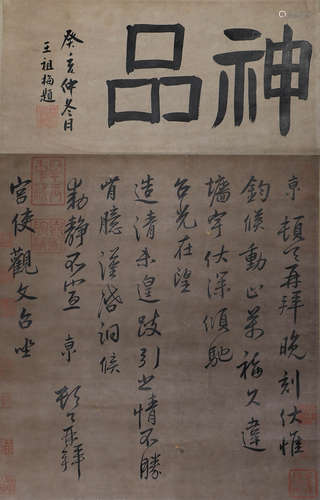 神品
癸亥仲冬月
王祖梅題
京 頓首再拜晚刻伏惟
鈞候動止萬福久違
墻宇伏深傾馳
台光在望
造請未遑跂引之情不勝
胷臆謹啓詗候
動静不宣 京 頓首再拜
宫使觀文台坐